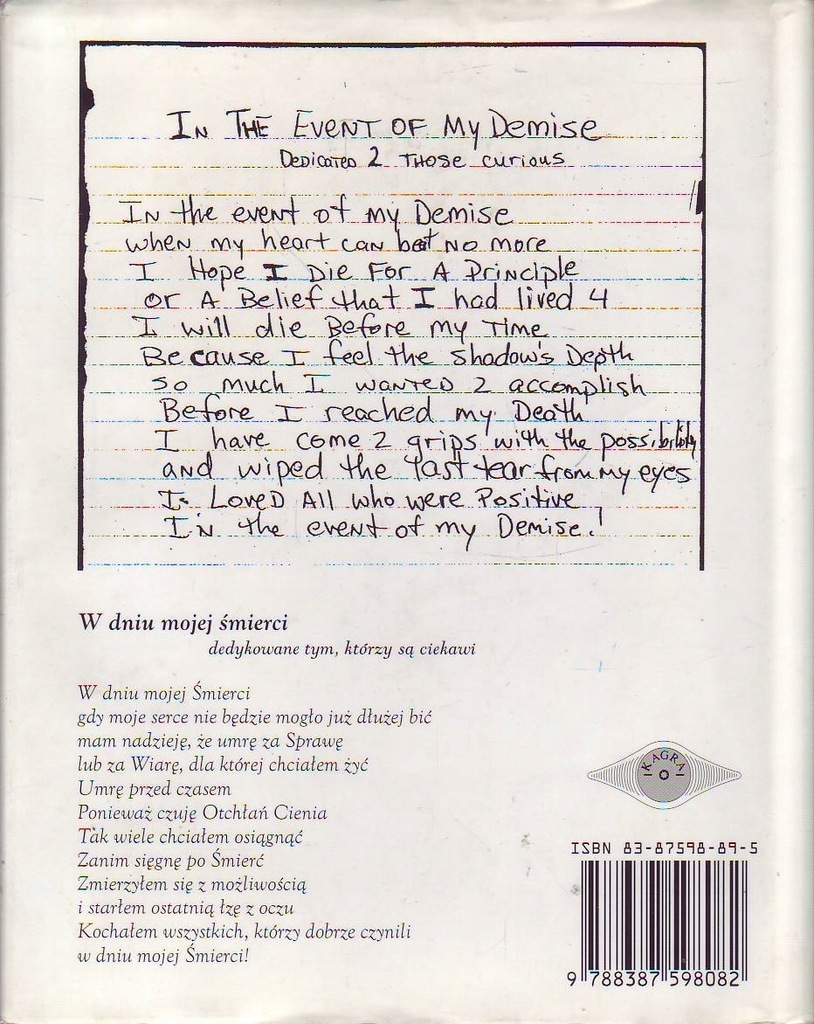 In The Event of My Demise
Dedicated 2 Those curious
In the event of my Demise
when my heart can beat no more
I Hope I Die For A Principle
or A Belief that I had lived 4
I will die Before my Time
Because I feel the shadow's Depth
so much I wanted 2 accomplish
Before I reached my Death
I have come 2 grips with the possibility
and wiped the last tear from my eyes
I Loved All who were Positive
In the event of my Demise!
W dniu mojej śmierci
dedykowane tym, którzy są ciekawi
W dniu mojej Śmierci
gdy moje serce nie będzie mogło już dłużej bić
mam nadzieję, że umrę za Sprawę
lub za Wiarę, dla której chciałem żyć
Umrę przed czasem
Ponieważ czuję Otchłań Cienia
Tak wiele chciałem osiągnąć
Zanim sięgnę po Śmierć
Zmierzyłem się z możliwością
i starłem ostatnią łzę z oczu
Kochałem wszystkich, którzy dobrze czynili
w dniu mojej Śmierci!
KAGRA
ISBN 83-87598-89-5
9 788387 598082